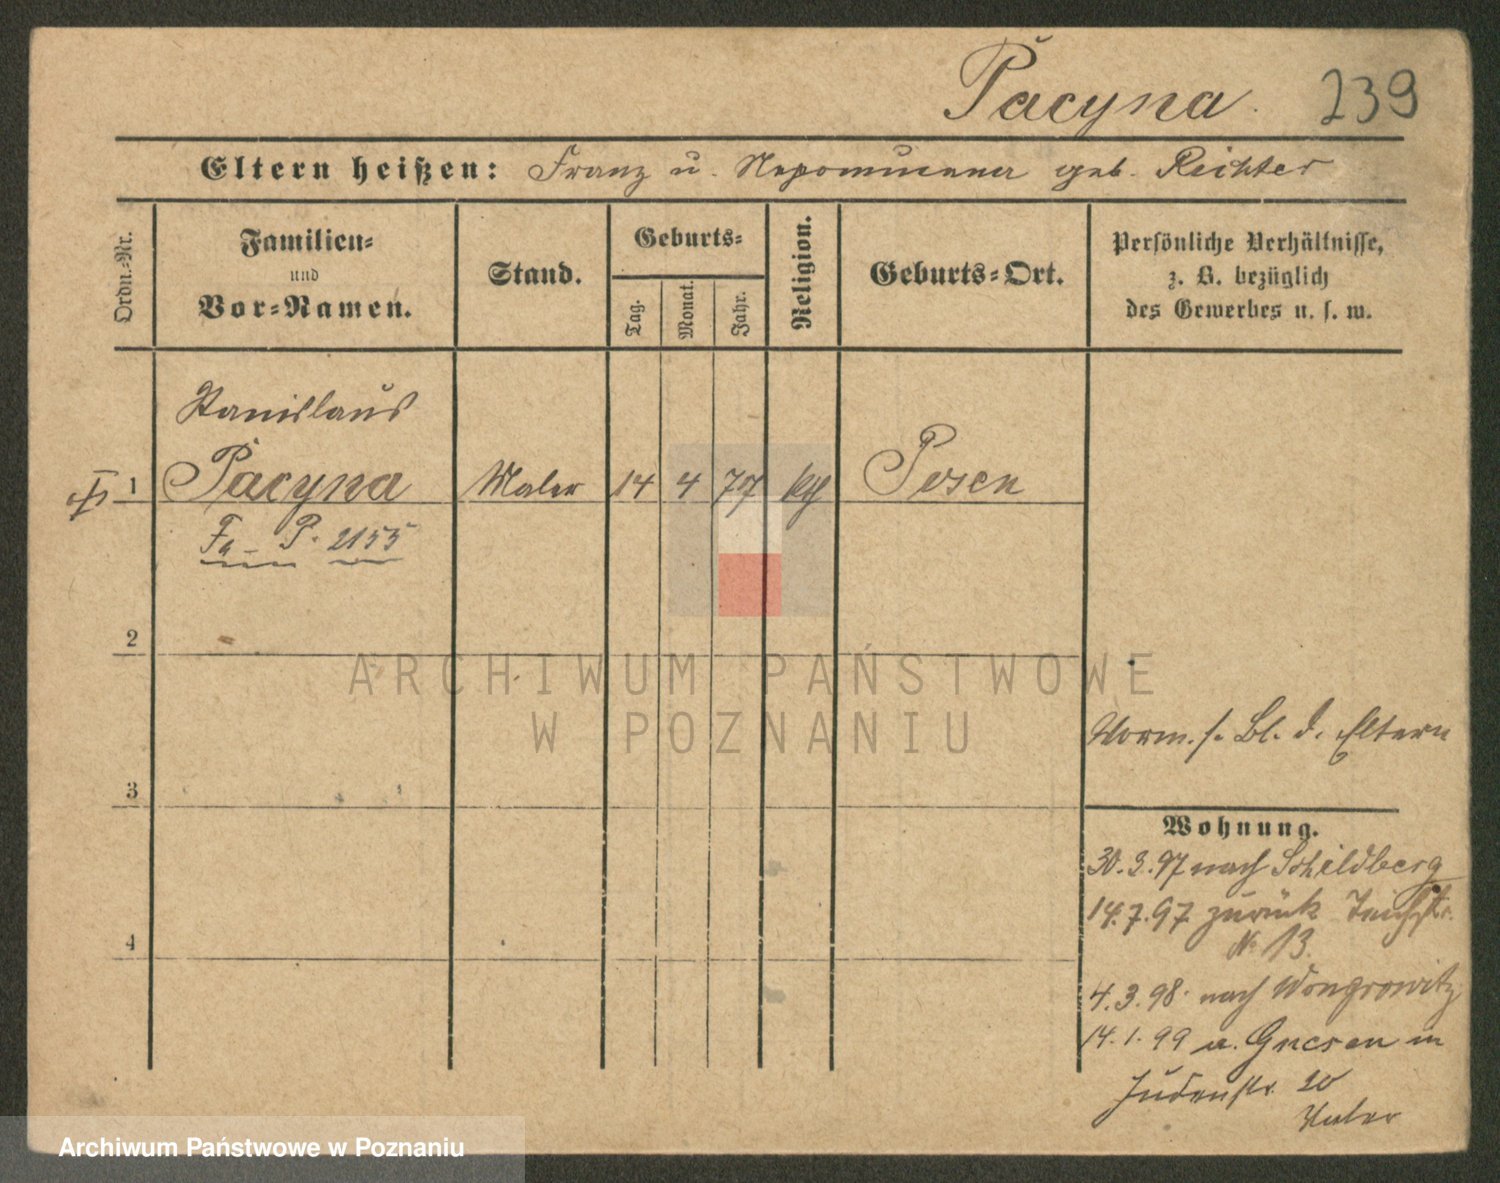 Pacyna. 239
Eltern heißen: Franz u. Nepomucena geb. Richter
Ordn.-Nr.
Familien=
und
Vor=Namen.
Stand.
Geburts=
Tag.
Monat.
Jahr.
Religion.
Geburts=Ort.
Persönliche Verhältnisse,
z. B. bezüglich
des Gewerbes u. s. w.
Stanislaus
1 Pacyna Maler 14 4 77 kth Posen
Fa - P. 2155
2
ARCHIWUM PAŃSTWOWE
W POZNANIU
Vorm. s. Bl. d. Eltern
3
Wohnung.
30.3.97 nach Schildberg
14.7.97 zurück Teichstr.
No 13.
4
4.3.98. nach Wongrowitz
14.1.99 a. Gnesen in
Judenstr. 20
Archiwum Państwowe w Poznaniu